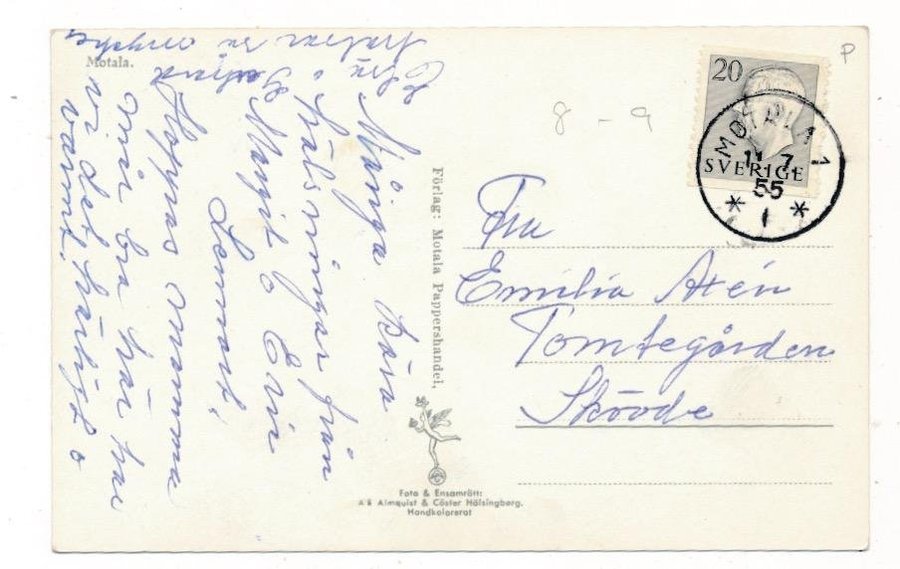 Motala.
Många kära
hälsningar från
Margit & Eric
Lennart.
Hoppas mamma
mår bra här har
vi det härligt o
varmt.
Förlag: Motala Pappershandel,
Foto & Ensamrätt:
A/B Almquist & Cöster Hälsingborg.
Handkolorerat
P
8 - 9
20
SVERIGE
MOTALA 1
11 7
55
Fru
Emilia Axén
Tomtegården
Skövde